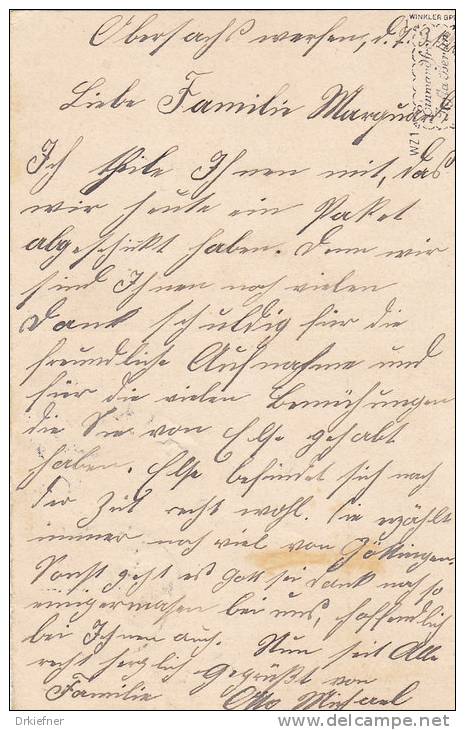 WINKLER
Obersachswerfen, d. 7.
Liebe Familie Marquardt
Ich theile Ihnen mit, das
wir heute ein Paket
abgeschikt haben. Denn wir
sind Ihnen noch vielen
Dank schuldig für die
freundliche Aufnahme und
für die vielen Bemühungen
die Sie von Else gehabt
haben. Else befindet sich nach
der Zeit recht wohl. Sie erzählt
immer noch viel von Göttingen.
Sonst geht es Gott sei Dank noch so
einigermasen bei uns, hoffendlich
bei Ihnen auch. Nun seit Alle
recht herzlich Gegrüßt von
Familie Otto Michael
© drkiefner
delcampe.net